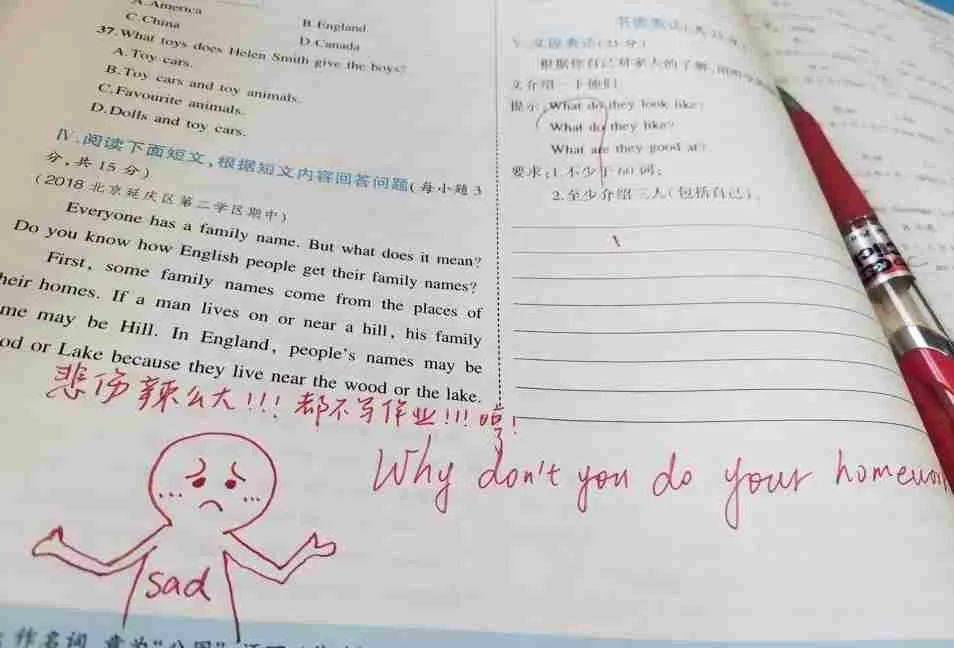 A. America
B. England
C. China
D. Canada
37. What toys does Helen Smith give the boys?
A. Toy cars.
B. Toy cars and toy animals.
C. Favourite animals.
D. Dolls and toy cars.
Ⅳ. 阅读下面短文,根据短文内容回答问题(每小题 3
分,共 15 分)
(2018 北京延庆区第二学区期中)
Everyone has a family name. But what does it mean?
Do you know how English people get their family names?
First, some family names come from the places of
heir homes. If a man lives on or near a hill, his family
me may be Hill. In England, people's names may be
od or Lake because they live near the wood or the lake.
书面表达(共
Ⅴ. 文段表达(15 分)
根据你自己对家人的了解,
文介绍一下他们
提示:What do they look like?
What do they like?
What are they good at?
要求:1. 不少于 60 词;
2. 至少介绍三人(包括自己)。
悲伤辣么大!!! 都不写作业!!! 哼!
Why don't you do your homewor
sad
作名词,意为“公园”